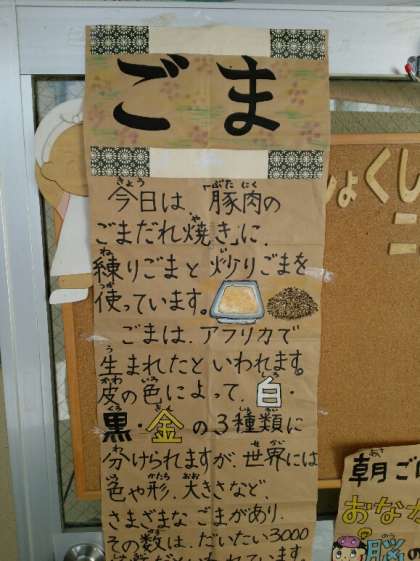 ごま
今日は、「豚肉の
ごまだれ焼き」に、
練りごまと炒りごまを
使っています。
ごまは、アフリカで
生まれたといわれます。
皮の色によって、白
黒・金の3種類に
分けられますが、世界には
色や形、大きさなど、
さまざまなごまがあり、
その数は、だいたい3000
種類だといわれています。
しょくし
こ
朝ごは
おなか
脳の